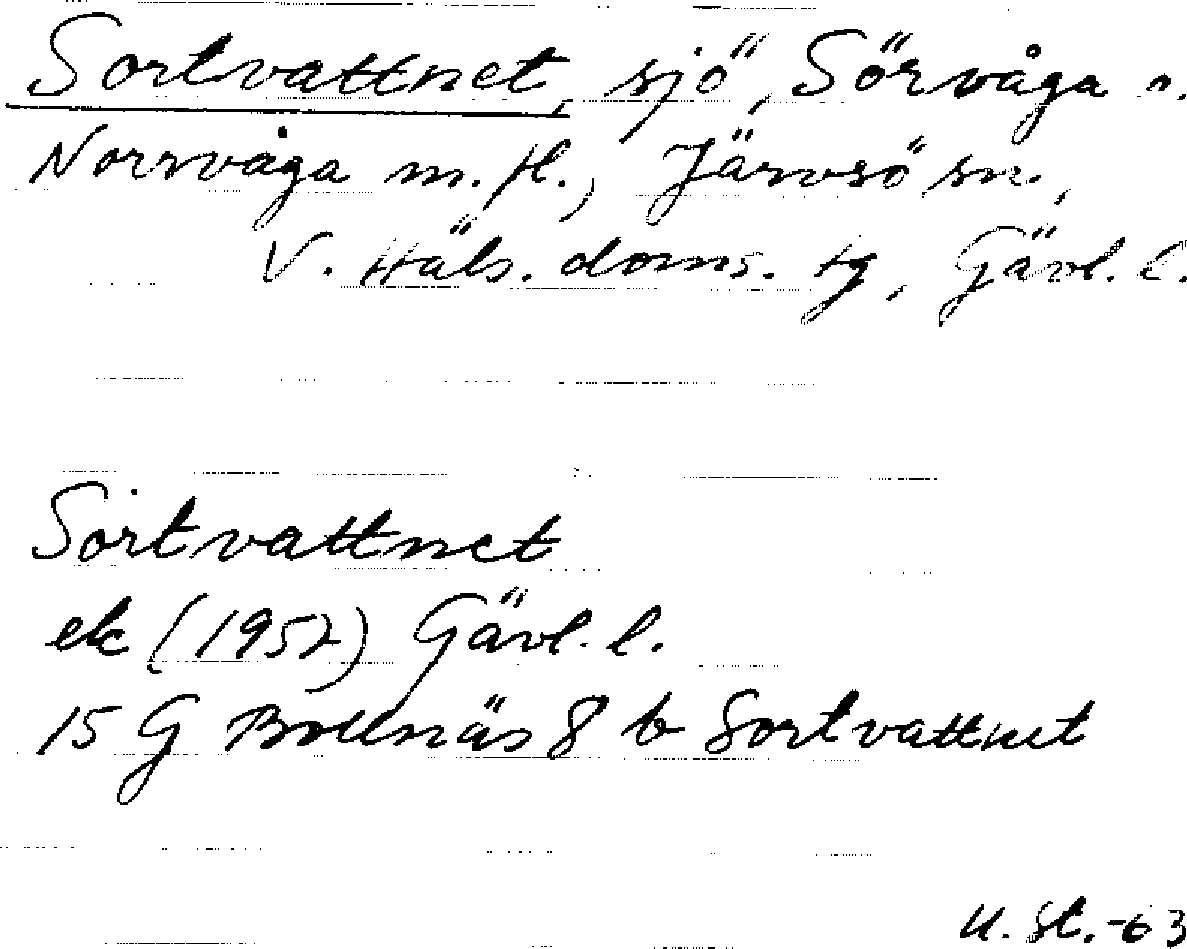 Sortvattnet, sjö, Sörvåga o.
Norrvåga m. fl., Järvsö sn.,
V. Häls. doms. tg, Gävl. l.
Sortvattnet
ek (1957) Gävl. l.
15 G Bollnäs 8 b Sortvattnet
U. St. -63